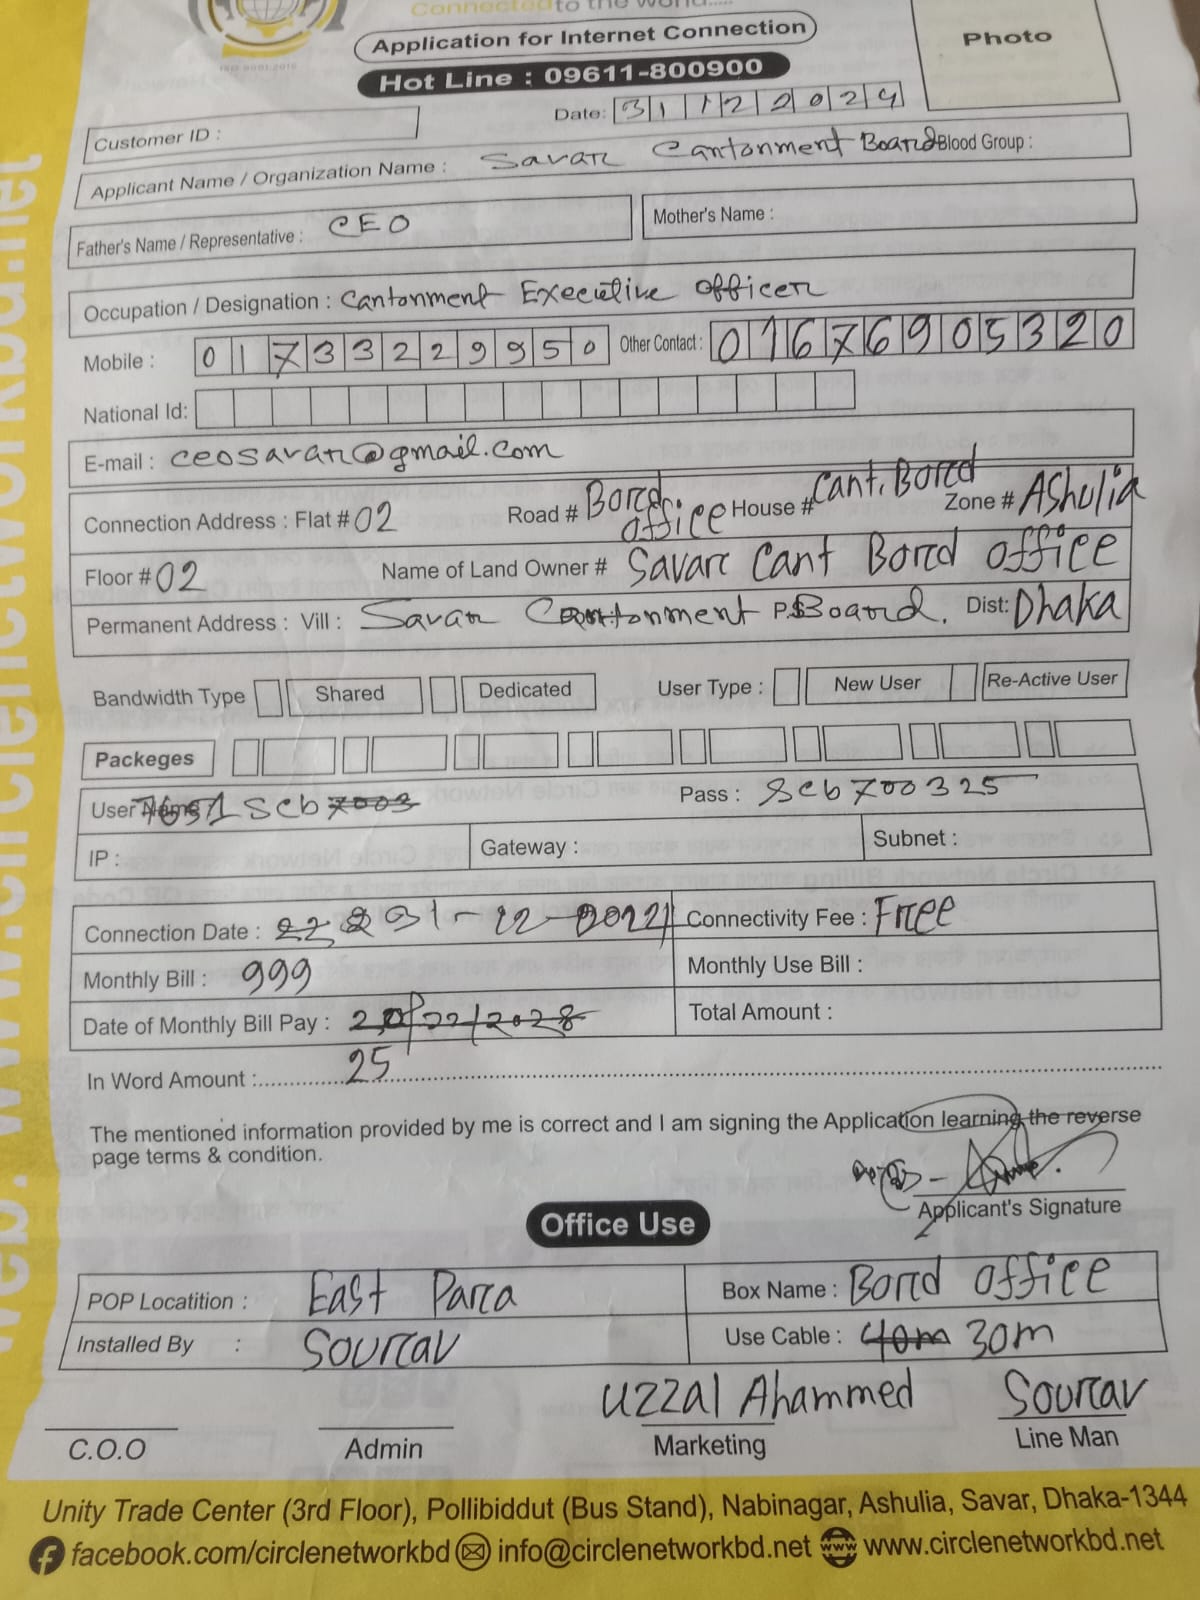 Connected to the world.....
ISO 9001:2015
Application for Internet Connection
Photo
Hot Line : 09611-800900
Date: 31122024
Customer ID :
Applicant Name / Organization Name : Savar Cantonment Board Blood Group :
Father's Name / Representative : CEO Mother's Name :
Occupation / Designation : Cantonment Executive officer
Mobile : 01733229950 Other Contact : 01676905320
National Id:
E-mail : ceosavar@gmail.com
Connection Address : Flat # 02 Road # Bord office House # Cant. Bord Zone # Ashulia
Floor # 02 Name of Land Owner # Savar Cant Bord office
Permanent Address : Vill : Savar Cantonment P.S Board. Dist: Dhaka
Bandwidth Type Shared Dedicated User Type : New User Re-Active User
Packeges
User Name 7651 scb7003 Pass : scb700325
IP : Gateway : Subnet :
Connection Date : 31-12-2024 Connectivity Fee : Free
Monthly Bill : 999 Monthly Use Bill :
Date of Monthly Bill Pay : Total Amount :
25
In Word Amount :
The mentioned information provided by me is correct and I am signing the Application learning the reverse
page terms & condition.
Applicant's Signature
Office Use
POP Locatition : East Para Box Name : Bord office
Installed By : Sourav Use Cable : 40m 30m
Uzzal Ahammed Sourav
C.O.O Admin Marketing Line Man
Unity Trade Center (3rd Floor), Pollibiddut (Bus Stand), Nabinagar, Ashulia, Savar, Dhaka-1344
facebook.com/circlenetworkbd info@circlenetworkbd.net www www.circlenetworkbd.net
web: www.circlenetworkbd.net